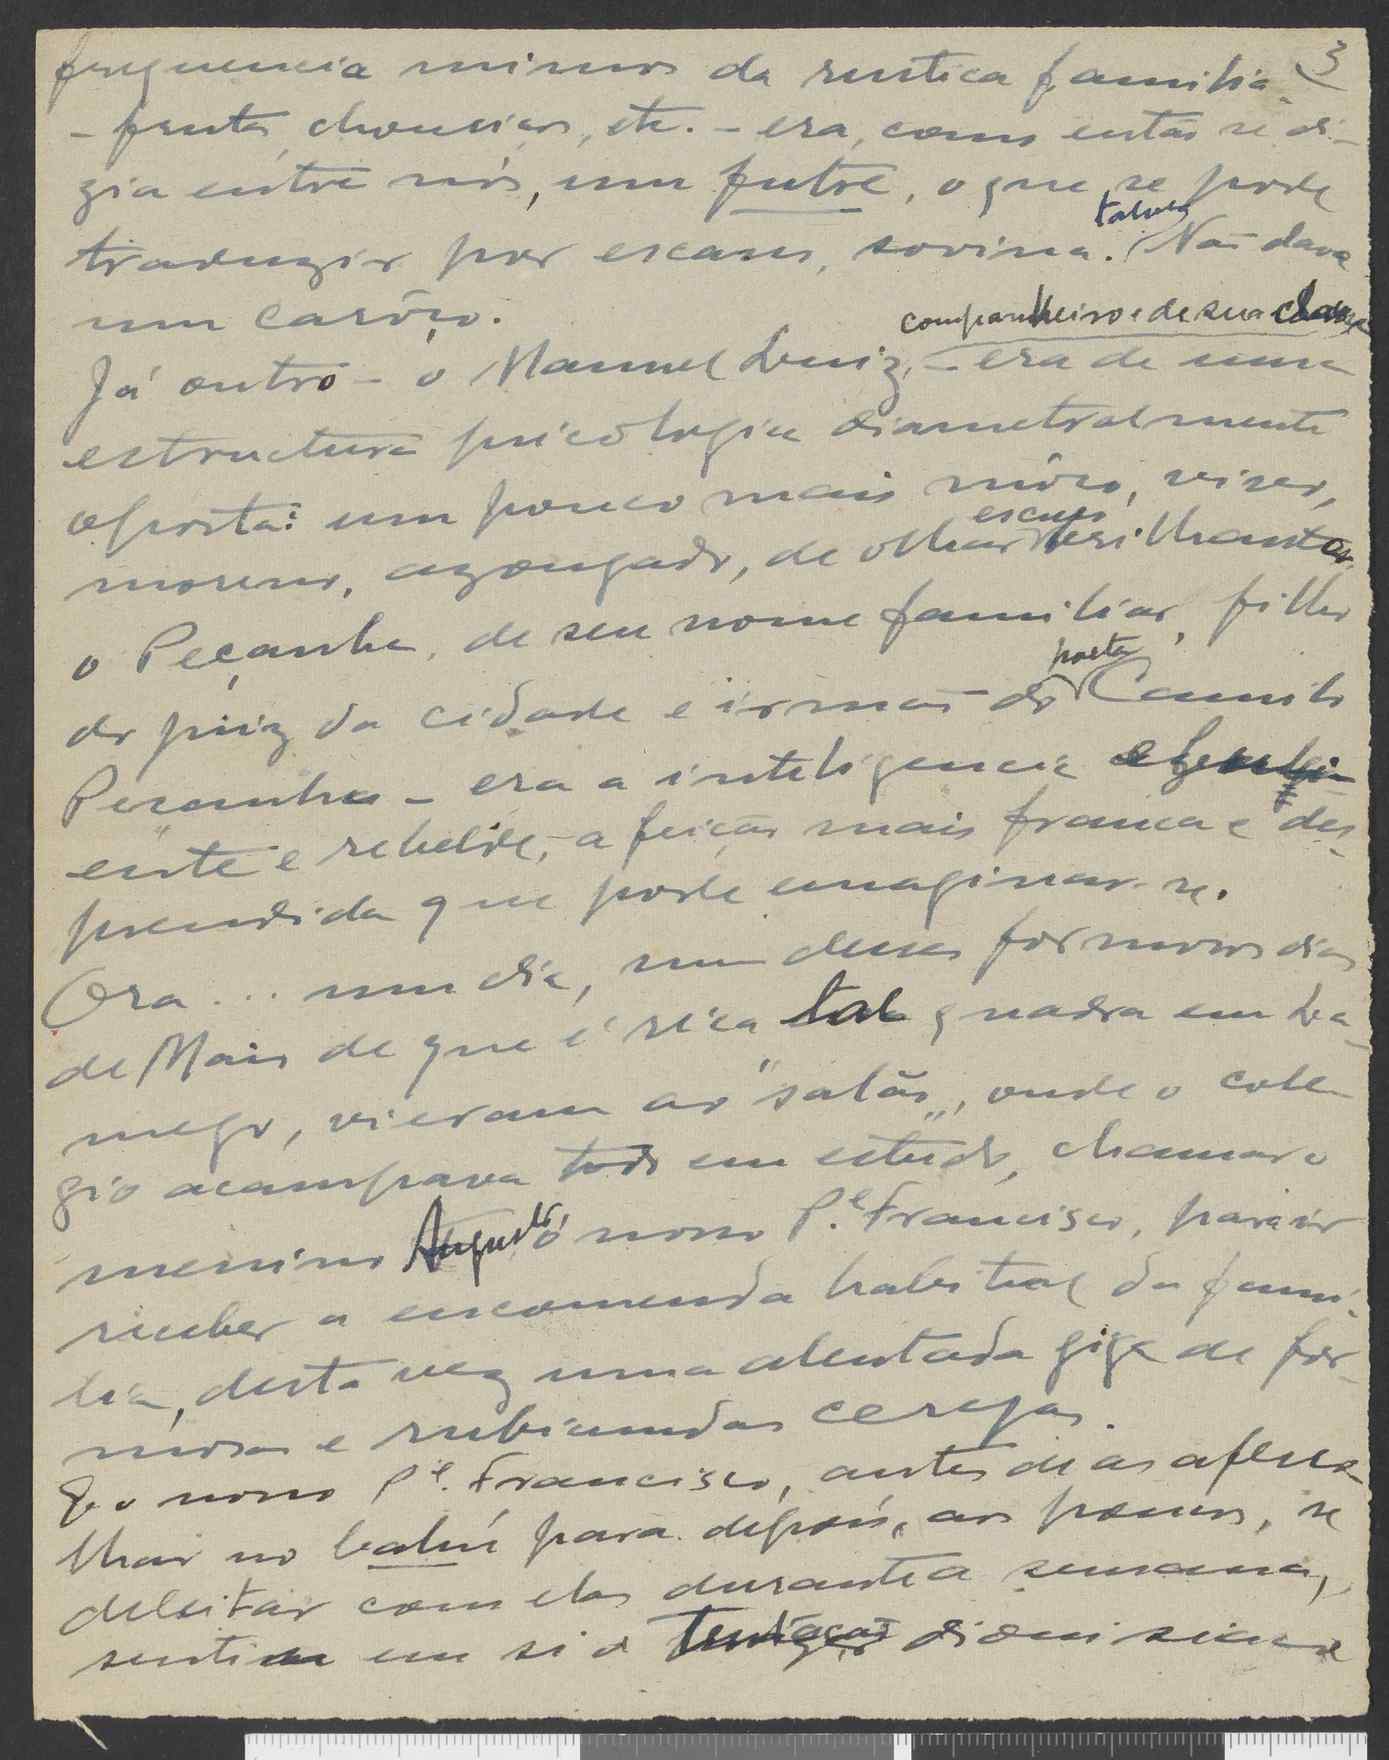 3
frequencia mimos da rustica familia
- frutas, chouriços, etc. - era, como então se di-
zia entre nós, um futre, o que se pode
talvez
traduzir por escasso, sovina. Não dava
um carôço.
companheiro e de sua classe
Já outro - o Manuel Luiz, - era de uma
estructura psicologica diametralmente
oposta: um pouco mais môço, vivo,
escuros
moreno, azougado, de olhar brilhantes,
o Peçanha, de seu nome familiar, filho
do juiz da cidade e irmão do Camilo
poeta
Pessanha - era a inteligencia
ente e rebelde, a feição mais franca e des-
prendida que pode emaginar-se.
Ora... um dia, num desses formosos dias
de Maio de que é rica tal quadra em La-
mego, vieram ao "salão", onde o cole-
gio acampava todo em estudo, chamar o
menino Augusto, o nosso P.e Francisco, para ir
receber a encomenda habitual da fami-
lia, desta vez uma alentada giga de for-
mosas e rubicundas cerejas.
E o nosso P.e Francisco, antes de as aferro-
lhar no bahú para depois, aos poucos, se
deleitar com elas durante a semana,
sentiu em si a tentação dionisiaca